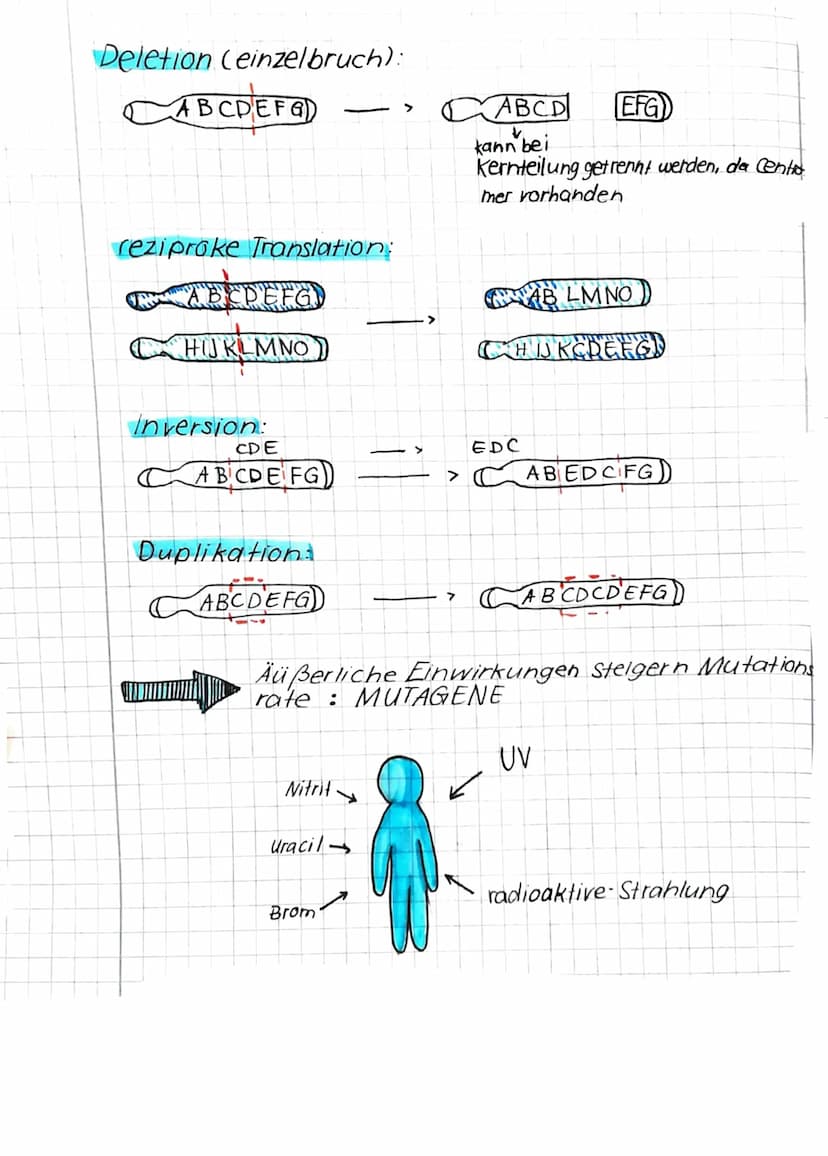 Deletion (einzelbruch):
ABCDEFG → ABCD EFG
kann bei
Kernteilung getrennt werden, da Centro
mer vorhanden
reziproke Translation:
ABCDEFG → AB LMNO
HIJKLMNO HIJKCDEFG
Inversion:
CDE → EDC
ABCDEFG → ABEDCFG
Duplikation:
ABCDEFG → ABCDCDEFG
Äüßerliche Einwirkungen steigern Mutations
rate : MUTAGENE
UV
Nitrit
Uracil
radioaktive-Strahlung
Brom